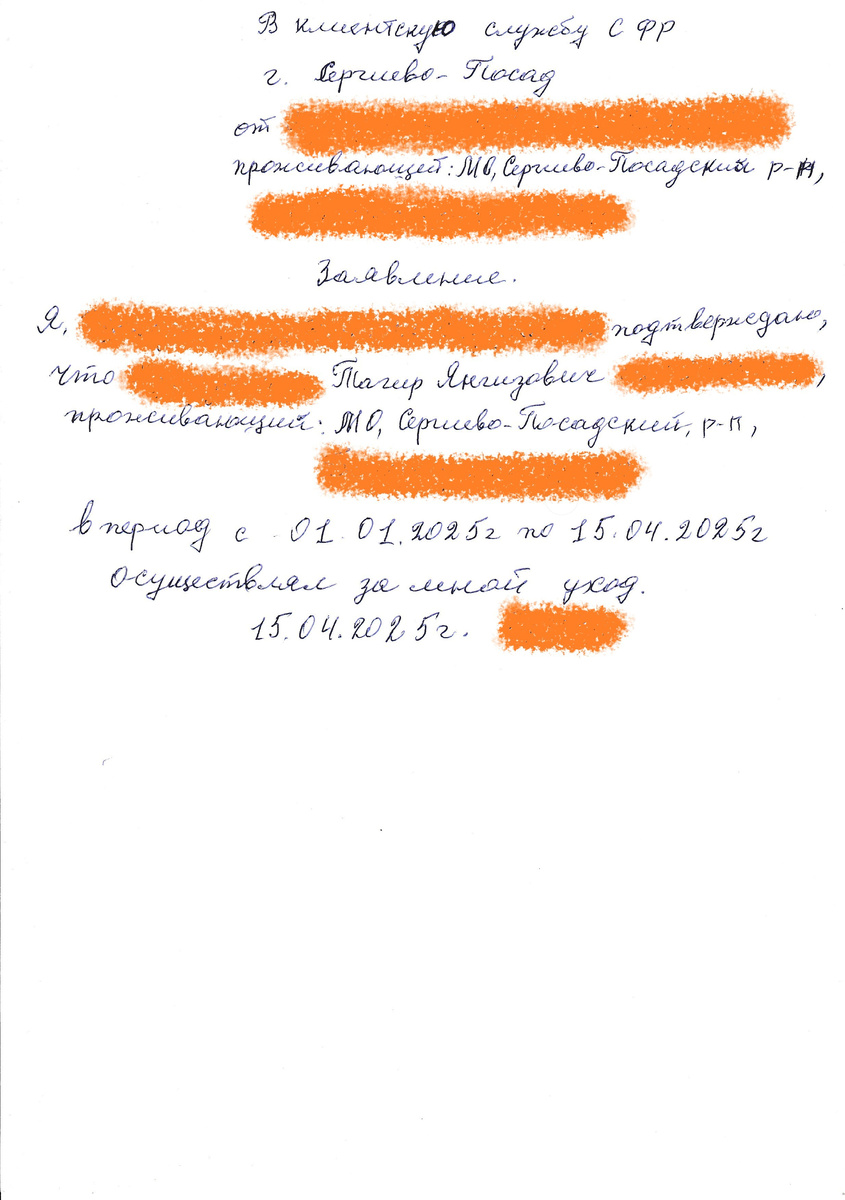 В клиентскую службу СФР
г. Сергиево-Посад
от
проживающей: МО, Сергиево-Посадский р-н,
Заявление.
Я, подтверждаю,
что Тагир Янгизович ,
проживающий: МО, Сергиево-Посадский, р-н,
в период с 01.01.2025г по 15.04.2025г
осуществлял за мной уход.
15.04.2025г.